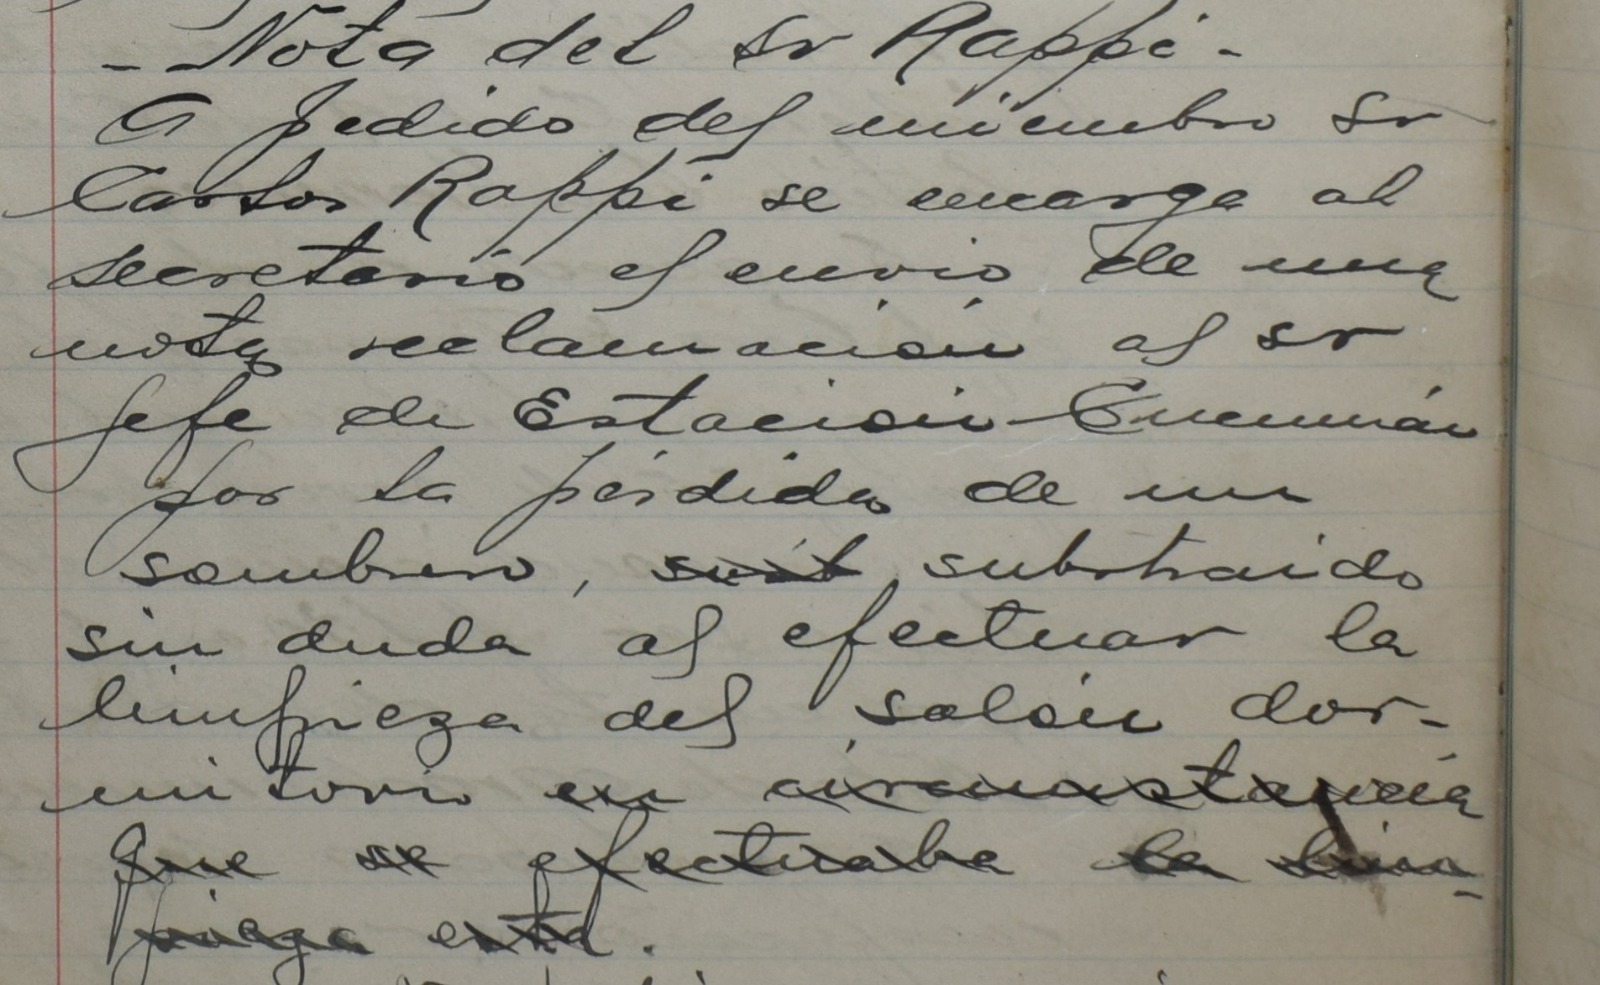 - Nota del sr Rappi -
A pedido del miembro sr
Carlos Rappi se encarga al
secretario el envio de una
nota reclamación al sr
Jefe de Estación Tucumán
por la pérdida de un
sombrero, substraido
sin duda al efectuar la
limpieza del salón dor-
mitorio en circunstancia
que se efectuaba la lim-
pieza esta.